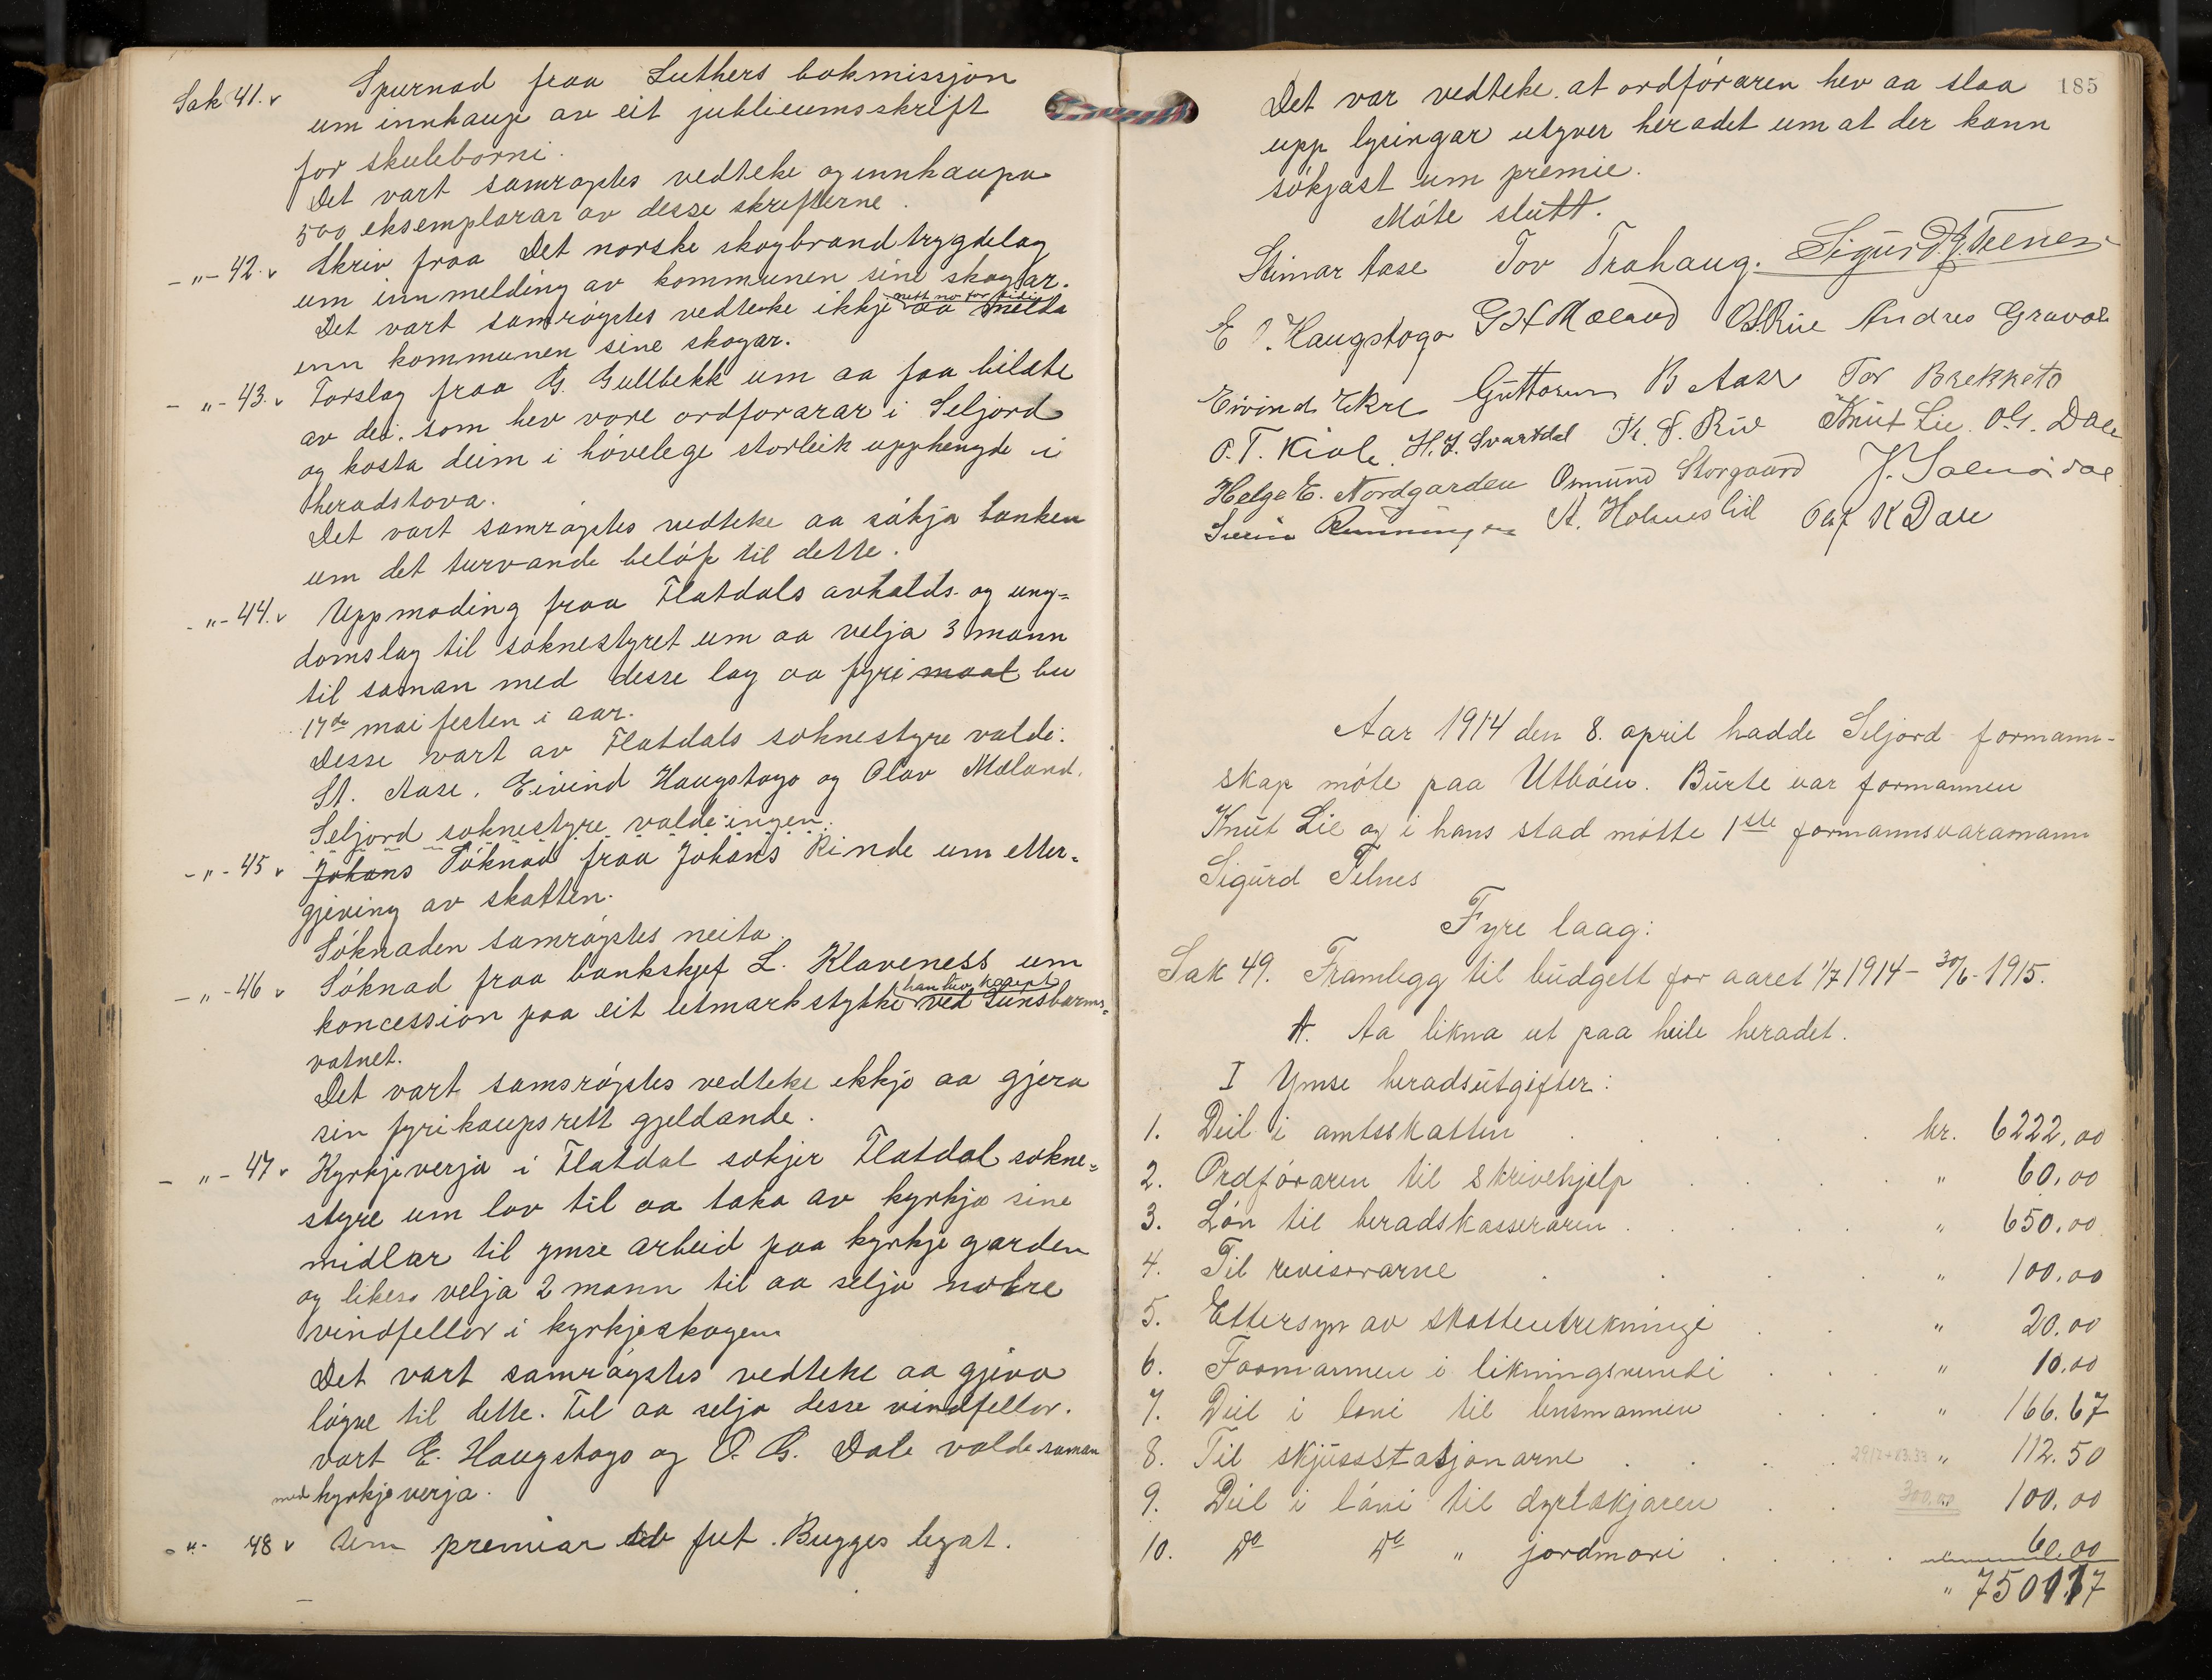 Sak 41. v Spurnad fraa Luthers bokmissjon
um innkaup av eit jubileumsskrift
for skuleborni.
Det vart samrøystes vedteke og innkaupa
500 eksemplarar av desse skrifterne.
-"- 42. v Skriv fraa Det norske skogbrandtrygdelag
um innmelding av kommunen sine skogar.
Det vart samrøystes vedteke ikkje nett no for tidi aa melda
inn kommunen sine skogar.
-"- 43. v Forslag fraa G. Gullbekk um aa faa bilæte
av dei som hev vore ordførarar i Seljord
og kosta deim i høvelege storleik upphengde i
heradstova.
Det vart samrøystes vedteke aa søkja banken
um det turvande beløp til dette.
-"- 44. v Uppmoding fraa Flatdals avhalds- og ung=
domslag til soknestyret um aa velja 3 mann
til saman med desse lag aa fyri maal bu
17de mai festen i aar.
Desse vart av Flatdals soknestyre valde:
St. Aase, Eivind Haugstoga og Olav Mæland.
Seljord soknestyre valde ingen.
-"- 45 v Johans Søknad fraa Johans Rinde um etter=
gjeving av skatten.
Søknaden samrøystes neita.
-"- 46 v Søknad fraa bankskjef L. Klaveness um
koncession paa eit utmarkstykke han hev kaupt ved Lunsbarms=
vatnet.
Det vart samsrøystes vedteke ikkje aa gjera
sin fyrikaupsrett gjeldande.
-"- 47 v Kyrkjeverja i Flatdal søkjer Flatdal sokne=
styre um lov til aa taka av kyrkja sine
midlar til ymse arbeid paa kyrkjegarden
og likeso velja 2 mann til aa selja nokre
vindfellor i kyrkjeskogen
Det vart samrøystes vedteke aa gjeva
løyve til dette. Til aa selja desse vindfellor.
vart E. Haugstoga og O. G. Dale valde saman
med kyrkjeverja.
-"- 48 v Um premiar av fut Bugges legat.
185
Det var vedteke at ordføraren hev aa slaa
upp lysingar utyver heradet um at der kann
søkjast um premie.
Møte slutt.
Steinar Aase Tov Trahaug. Sigurd J. Telnes
E O. Haugstoga G H Mæland O S Rue Andres Graval
Eivind Ekre Guttorm B Aase Tor Brekketo
O. T. Kiole H. J. Svartdal K. S. Rue Knut Lie O. G. Dale
Helge E. Nordgarden Osmund Storgaard
Svein Rinningen A. Holmslid Olaf K Dale
Aar 1914 den 8. april hadde Seljord formann-
skap møte paa Utbøen. Burte var formannen
Knut Lie og i hans stad møtte 1ste formannsvaramann
Sigurd Telnes
Fyre laag:
Sak 49. Framlegg til budgett for aaret 1/7 1914 - 30/6 1915.
A. Aa likna ut paa heile heradet.
I Ymse heradsutgifter:
1. Deil i amtsskatten . . . . kr. 6222,00
2. Ordføraren til skrivehjelp . . . . " 60,00
3. Løn til heradskasseraren . . . . " 650,00
4. Til revisorarne . . . . " 100,00
5. Ettersyn av skatteutrekningi . . " 20.00
6. Formannen i likningsnemdi . . . " 10.00
7. Deil i løni til lensmannen . . . " 166.67
8. Til skjussstasjonarne . . . . 29.17+83.33 " 112.50
9. Deil i løni til dyrlækjaren . . 300.00 100,00
10. Do Do " jordmori . . . . " 60.00
" 7501.17